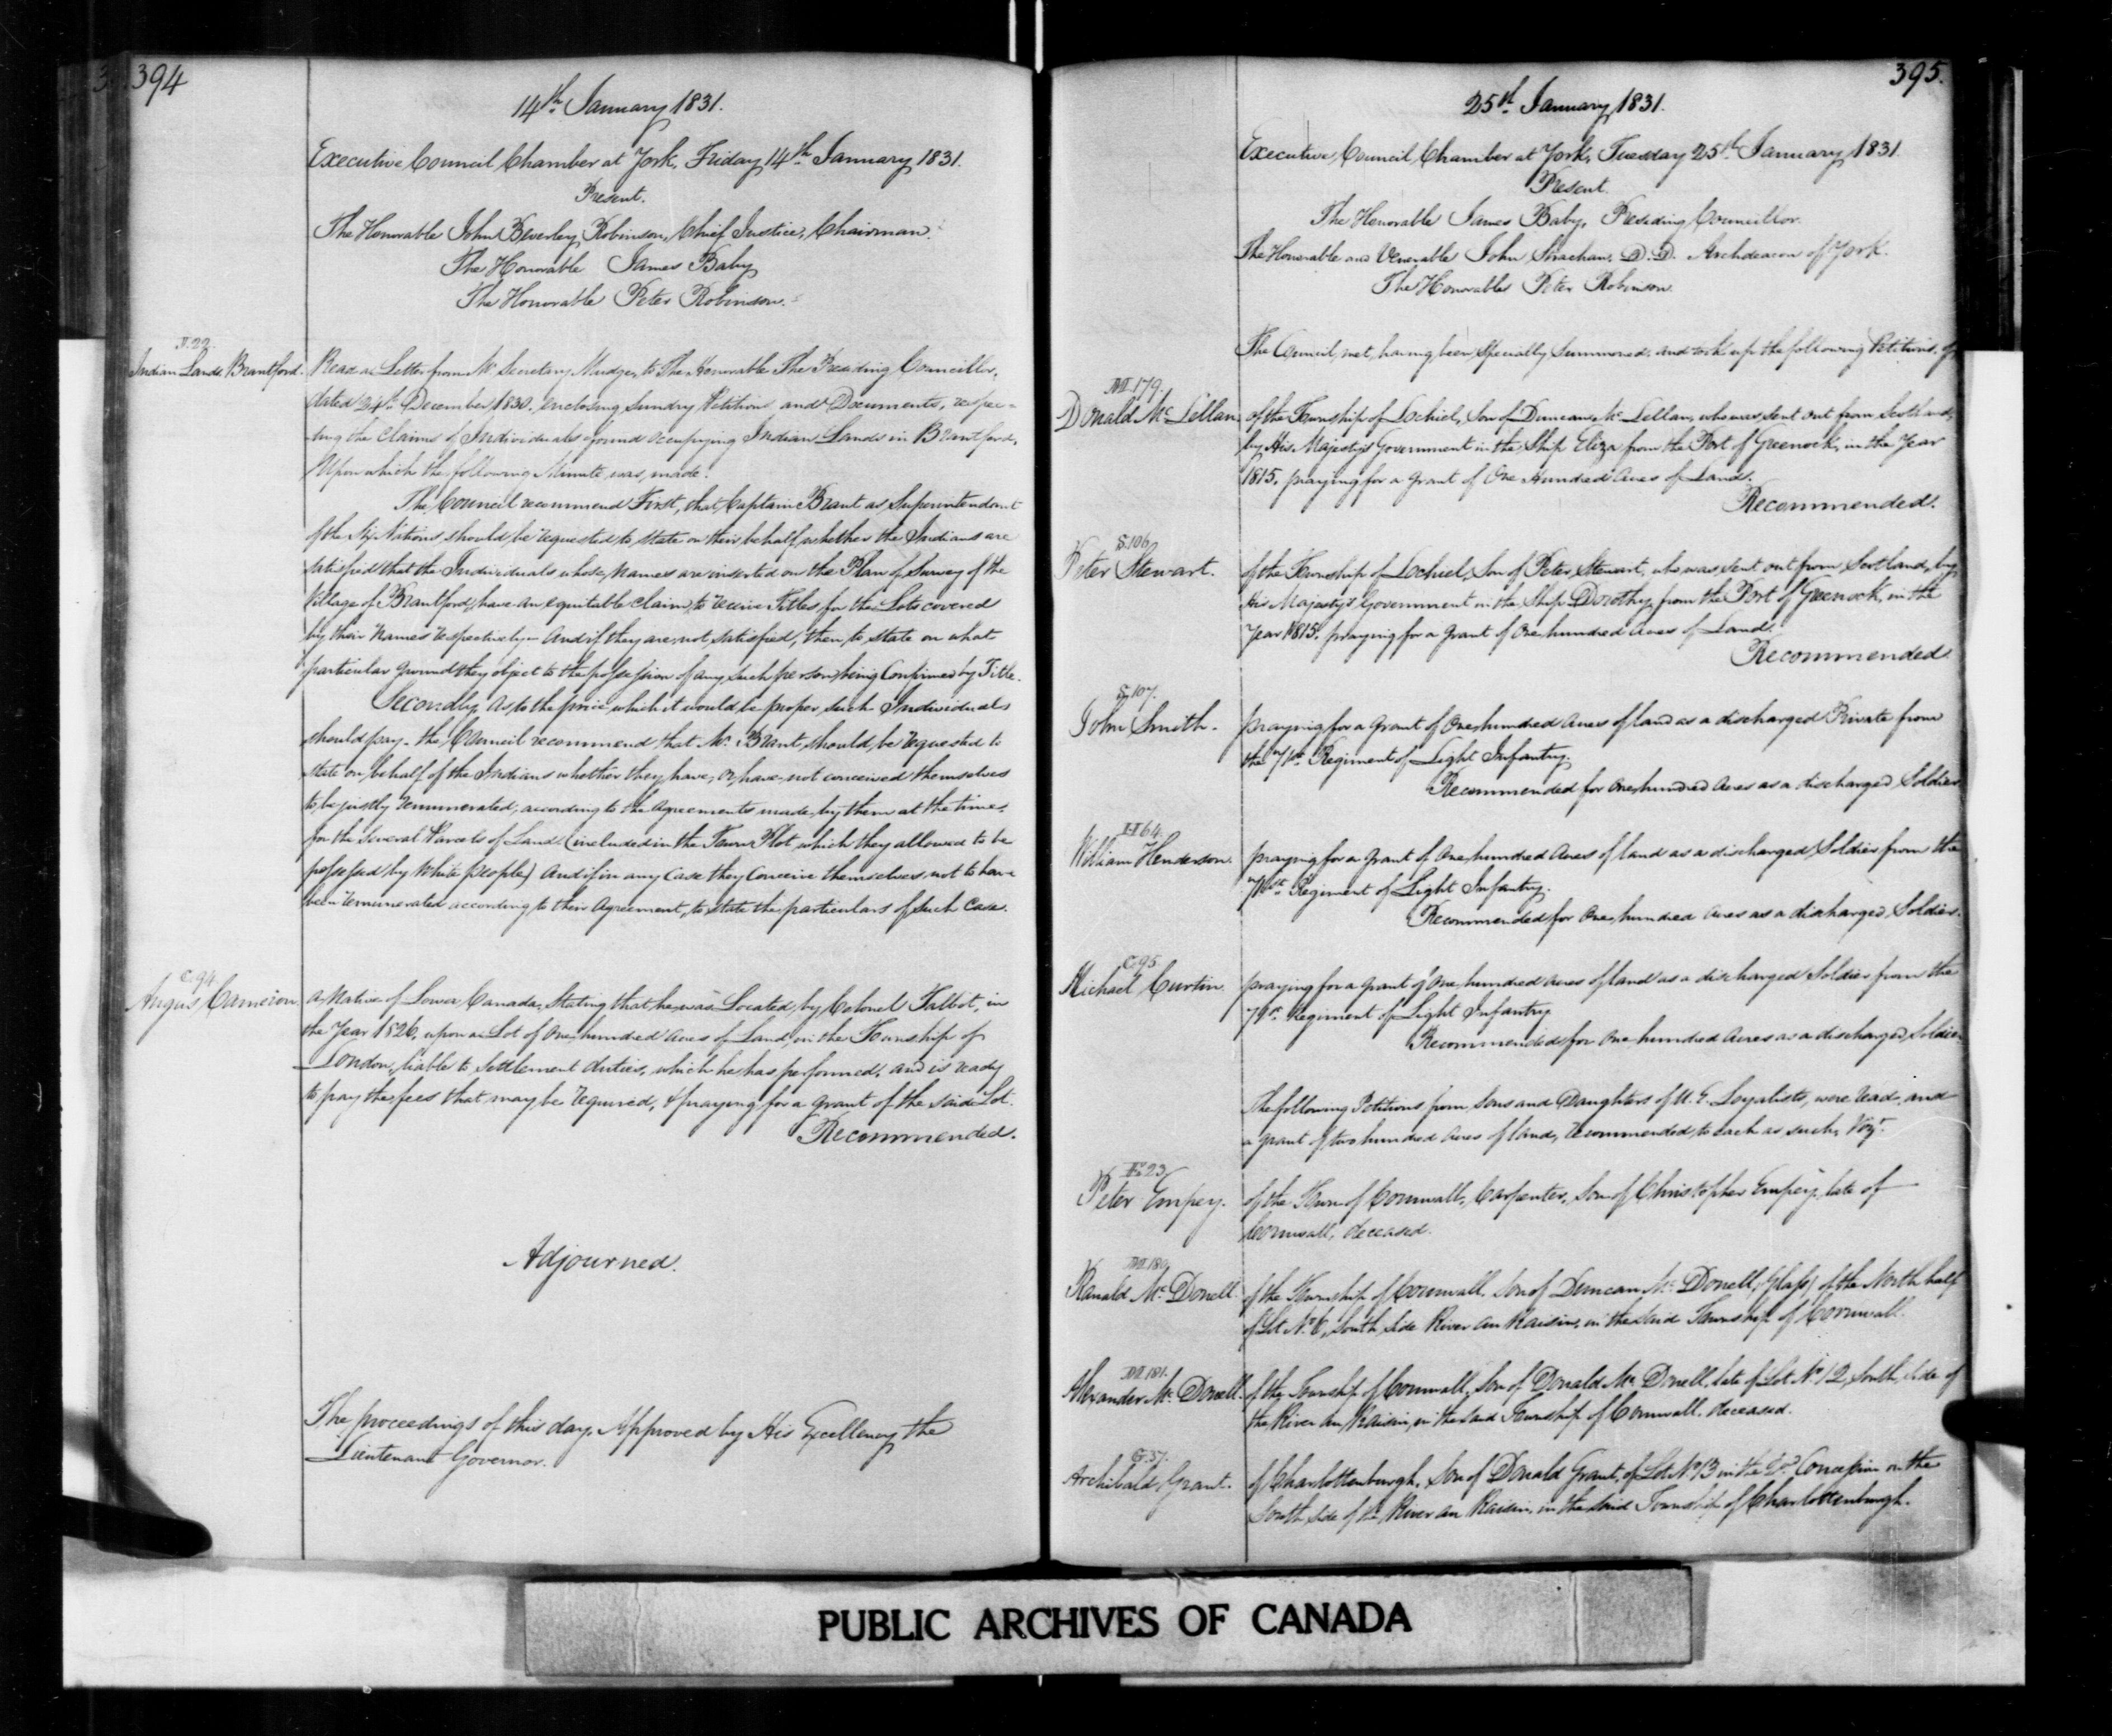 394
14th January 1831.
Executive Council Chamber at York, Friday 14th January 1831.
Present.
The Honorable John Beverley Robinson, Chief Justice, Chairman.
The Honorable James Baby
The Honorable Peter Robinson.
Indian Lands Brantford.
Read a Letter from Mr Secretary Mudge, to The Honorable The Presiding Councillor,
dated 24th December 1830, enclosing sundry Petitions and Documents, respec-
ting the Claims of Individuals found occupying Indian Lands in Brantford.
Upon which the following Minute was made.
The Council recommend First, that Captain Brant as Superintendent
of the Six Nations should be requested to state on their behalf whether the Indians are
satisfied that the Individuals whose names are inserted on the Plan of Survey of the
Village of Brantford, have an equitable claim to receive Titles for the Lots covered
by their names respectively – And if they are not satisfied, then to state on what
particular ground they object to the possession of any such person being Confirmed by Title.
Secondly, As to the price which it would be proper such Individuals
should pay – the Council recommend that Mr Brant should be requested to
state on behalf of the Indians whether they have, or have not conceived themselves
to be justly remunerated, according to the Agreements made by them at the time,
for the several Parcels of Land (included in the Town Plot which they allowed to be
possessed by White people) And if in any Case they Conceive themselves not to have
been remunerated according to their Agreement, to state the particulars of such Case.
C. 94.
Angus Cameron
A Native of Lower Canada, Stating that he was Located by Colonel Talbot, in
the Year 1826, upon a Lot of One hundred Acres of Land, in the Township of
London, liable to settlement duties, which he has performed, and is ready
to pay the fees that may be required, & praying for a grant of the said Lot.
Recommended.
Adjourned.
The proceedings of this day, Approved by His Excellency the
Lieutenant Governor.
395.
25th January 1831.
Executive Council Chamber at York, Tuesday 25th January 1831
Present.
The Honorable James Baby, Presiding Councillor.
The Honorable and Venerable John Strachan, D.D. Archdeacon of York.
The Honorable Peter Robinson.
The Council met, having been Specially Summoned, and took up the following Petitions, of
M. 179.
Donald McLellan
of the Township of Lochiel, Son of Duncan McLellan, who was sent out from Scotland,
by His Majesty's Government in the Ship Eliza from the Port of Greenock, in the Year
1815, praying for a grant of One Hundred Acres of Land.
Recommended.
S. 106
Peter Stewart.
of the Township of Lochiel, Son of Peter Stewart, who was sent out from Scotland, by
His Majesty's Government in the Ship Dorothy from the Port of Greenock, in the
Year 1815, praying for a grant of One hundred Acres of Land.
Recommended
S. 107.
John Smith.
praying for a grant of One hundred Acres of land as a discharged Private from
the 71st Regiment of Light Infantry.
Recommended for One hundred Acres as a discharged Soldier
H 64.
William Henderson
praying for a grant of One hundred Acres of land as a discharged Soldier from the
71st Regiment of Light Infantry.
Recommended for One hundred Acres as a discharged Soldier.
C. 95.
Michael Curtin
praying for a grant of One hundred Acres of land as a discharged Soldier from the
Regiment of Light Infantry
Recommended for One hundred Acres as a discharged Soldier
The following Petitions from Sons and Daughters of U. E. Loyalists, were read, and
a grant of two hundred Acres of land, recommended to each as such, Vizt.
E. 23
Peter Empey.
of the Town of Cornwall, Carpenter, Son of Christopher Empey, late of
Cornwall, deceased.
M. 180
Ranald McDonell
of the Township of Cornwall, Son of Duncan McDonell (Glass) of the North half
of Lot No 6, South Side River au Raisin, in the said Township of Cornwall.
M. 181.
Alexander McDonell
of the Township of Cornwall, Son of Donald McDonell, late of Lot No 12, South side of
the River au Raisin, in the said Township of Cornwall, deceased.
G. 37.
Archibald Grant.
of Charlottenburgh, Son of Donald Grant, of Lot No 13 in the 2d Concession on the
South side of the River au Raisin, in the said Township of Charlottenburgh.
PUBLIC ARCHIVES OF CANADA